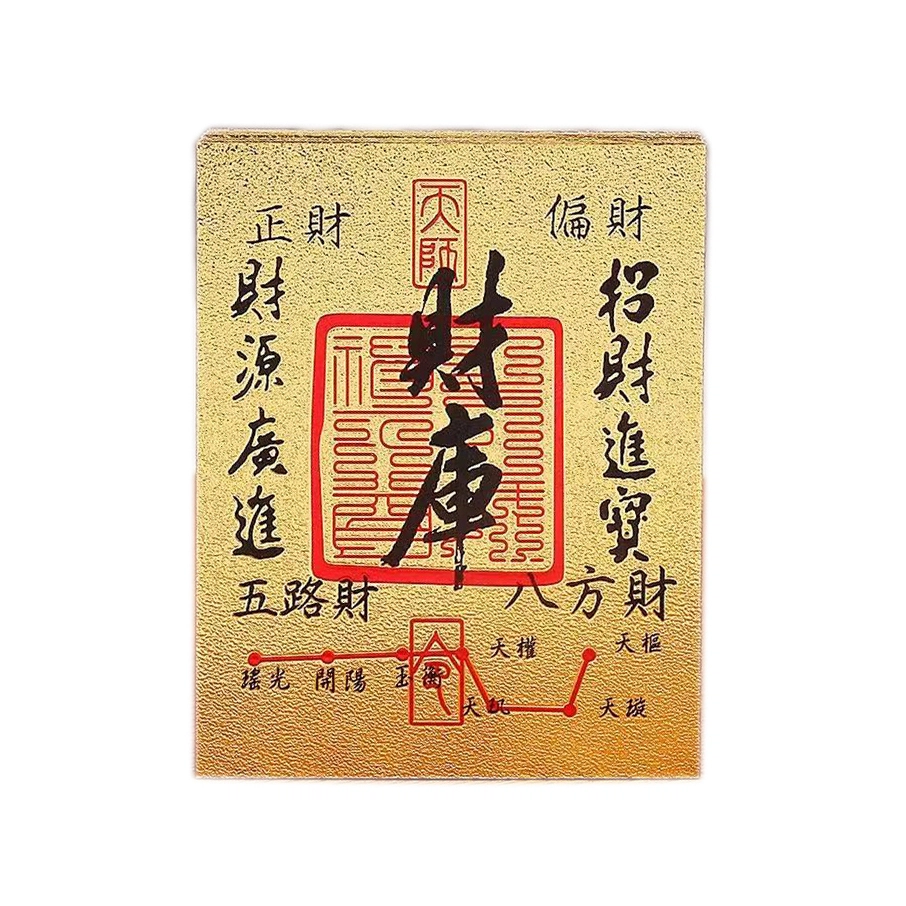 天師
正財
偏財
財庫
財源廣進
招財進寶
五路財
八方財
令
天權
天樞
瑤光
開陽
玉衡
天璣
天璇